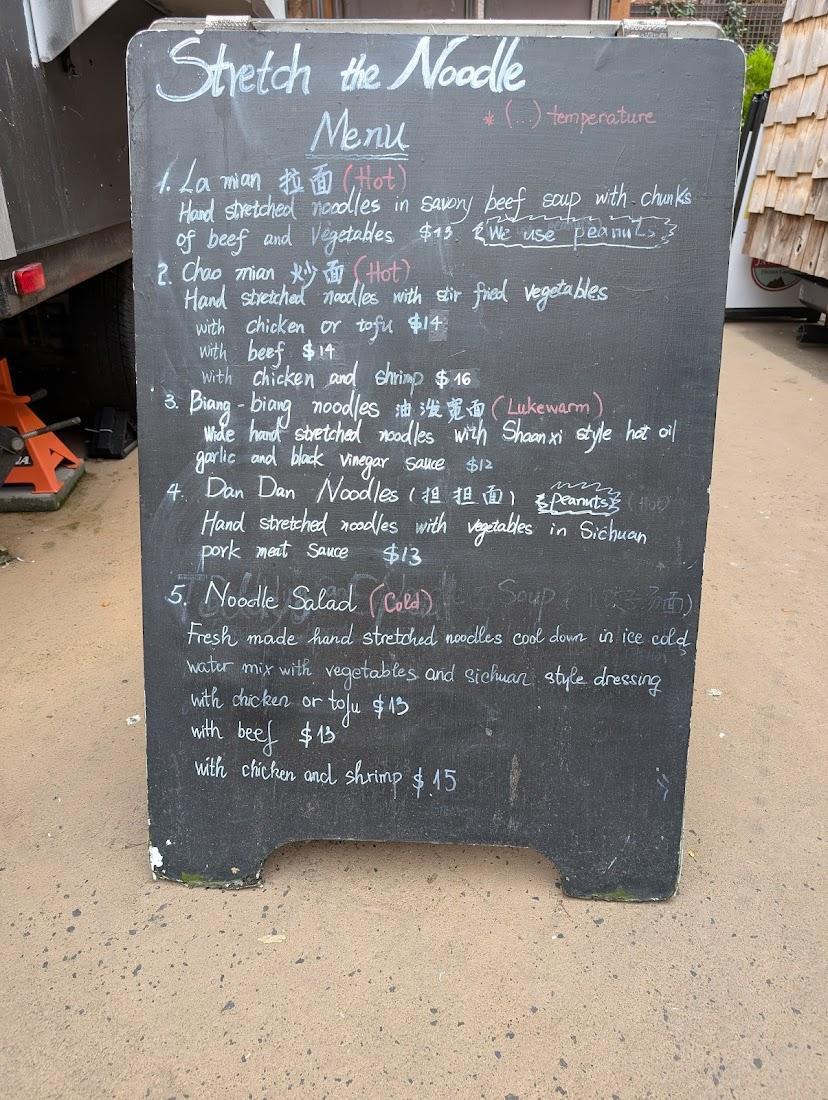 Stretch the Noodle
* (...) temperature
Menu
1. La mian 拉面 (Hot)
Hand stretched noodles in savory beef soup with chunks
of beef and Vegetables $13 We use peanuts
2. Chao mian 炒面 (Hot)
Hand stretched noodles with stir fried vegetables
with chicken or tofu $14
with beef $14
with chicken and shrimp $16
3. Biang-biang noodles 油泼宽面 (Lukewarm)
Wide hand stretched noodles with Shaanxi style hot oil
garlic and black vinegar sauce $12
4. Dan Dan Noodles (担担面) Peanuts (Hot)
Hand stretched noodles with vegetables in Sichuan
pork meat sauce $13
5. Noodle Salad (Cold) Soup
Fresh made hand stretched noodles cool down in ice cold
water mix with vegetables and sichuan style dressing
with chicken or tofu $13
with beef $13
with chicken and shrimp $15